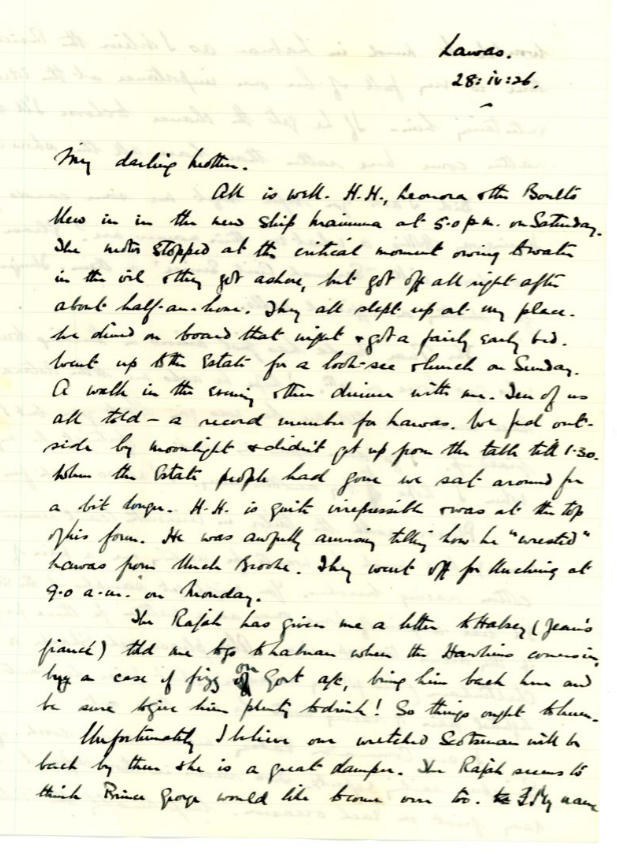 Lawas.
28:iv:26.
My darling mother.
All is well. H.H., Leonora & the Boults
blew in in the new ship Maimuna at 5.0 p.m. on Saturday.
The motor stopped at the critical moment owing to water
in the oil & they got ashore, but got off all right after
about half-an-hour. They all slept up at my place.
We dined on board that night & got a fairly early bed.
Went up to the Estate for a look-see & lunch on Sunday.
A walk in the evening & then dinner with me. Ten of us
all told – a record number for Lawas. We fed out-
side by moonlight & didn't get up from the table till 1.30.
When the Estate people had gone we sat around for
a bit longer. H.H. is quite irrepressible & was at the top
of his form. He was awfully amusing telling how he "wrested"
Lawas from Uncle Brooke. They went off for Kuching at
9.0 a.m. on Monday.
The Rajah has given me a letter to Halsey (Jean's
fiancé) & told me to go to Labuan when the Hawkins comes in,
buy a case of fizz on Govt a/c, bring him back here and
be sure to give him plenty to drink! So things ought to hum.
Unfortunately I believe our wretched Scotsman will be
back by then & he is a great damper. The Rajah seems to
think Prince George would like to come over too. My name